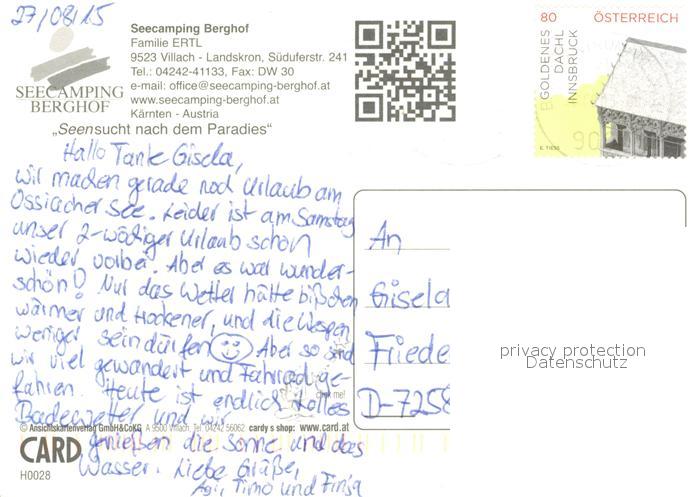 27/08/15
Seecamping Berghof
Familie ERTL
9523 Villach - Landskron, Süduferstr. 241
Tel.: 04242-41133, Fax: DW 30
e-mail: office@seecamping-berghof.at
www.seecamping-berghof.at
Kärnten - Austria
SEECAMPING
BERGHOF
„Seensucht nach dem Paradies“
80 ÖSTERREICH
GOLDENES
DACHL
INNSBRUCK
E. TIESS
90
Hallo Tante Gisela,
wir machen gerade noch Urlaub am
Ossiacher See. Leider ist am Samstag
unser 2-wöchiger Urlaub schon
wieder vorbei. Aber es war wunder-
schön! Nur das Wetter hätte bißchen
wärmer und trockener, und die Wespen
weniger sein dürfen Aber so sind
wir viel gewandert und Fahrrad ge-
fahren. Heute ist endlich tolles
Badewetter und wir
genießen die Sonne und das
Wasser. Liebe Grüße,
Timo und Finja
An
Gisela
Friede
D-7258
privacy protection
Datenschutz
© Ansichtskartenverlag GmbH&CoKG A 9500 Villach, Tel. 04242 56062 cardy s shop: www.card.at
CARD
H0028